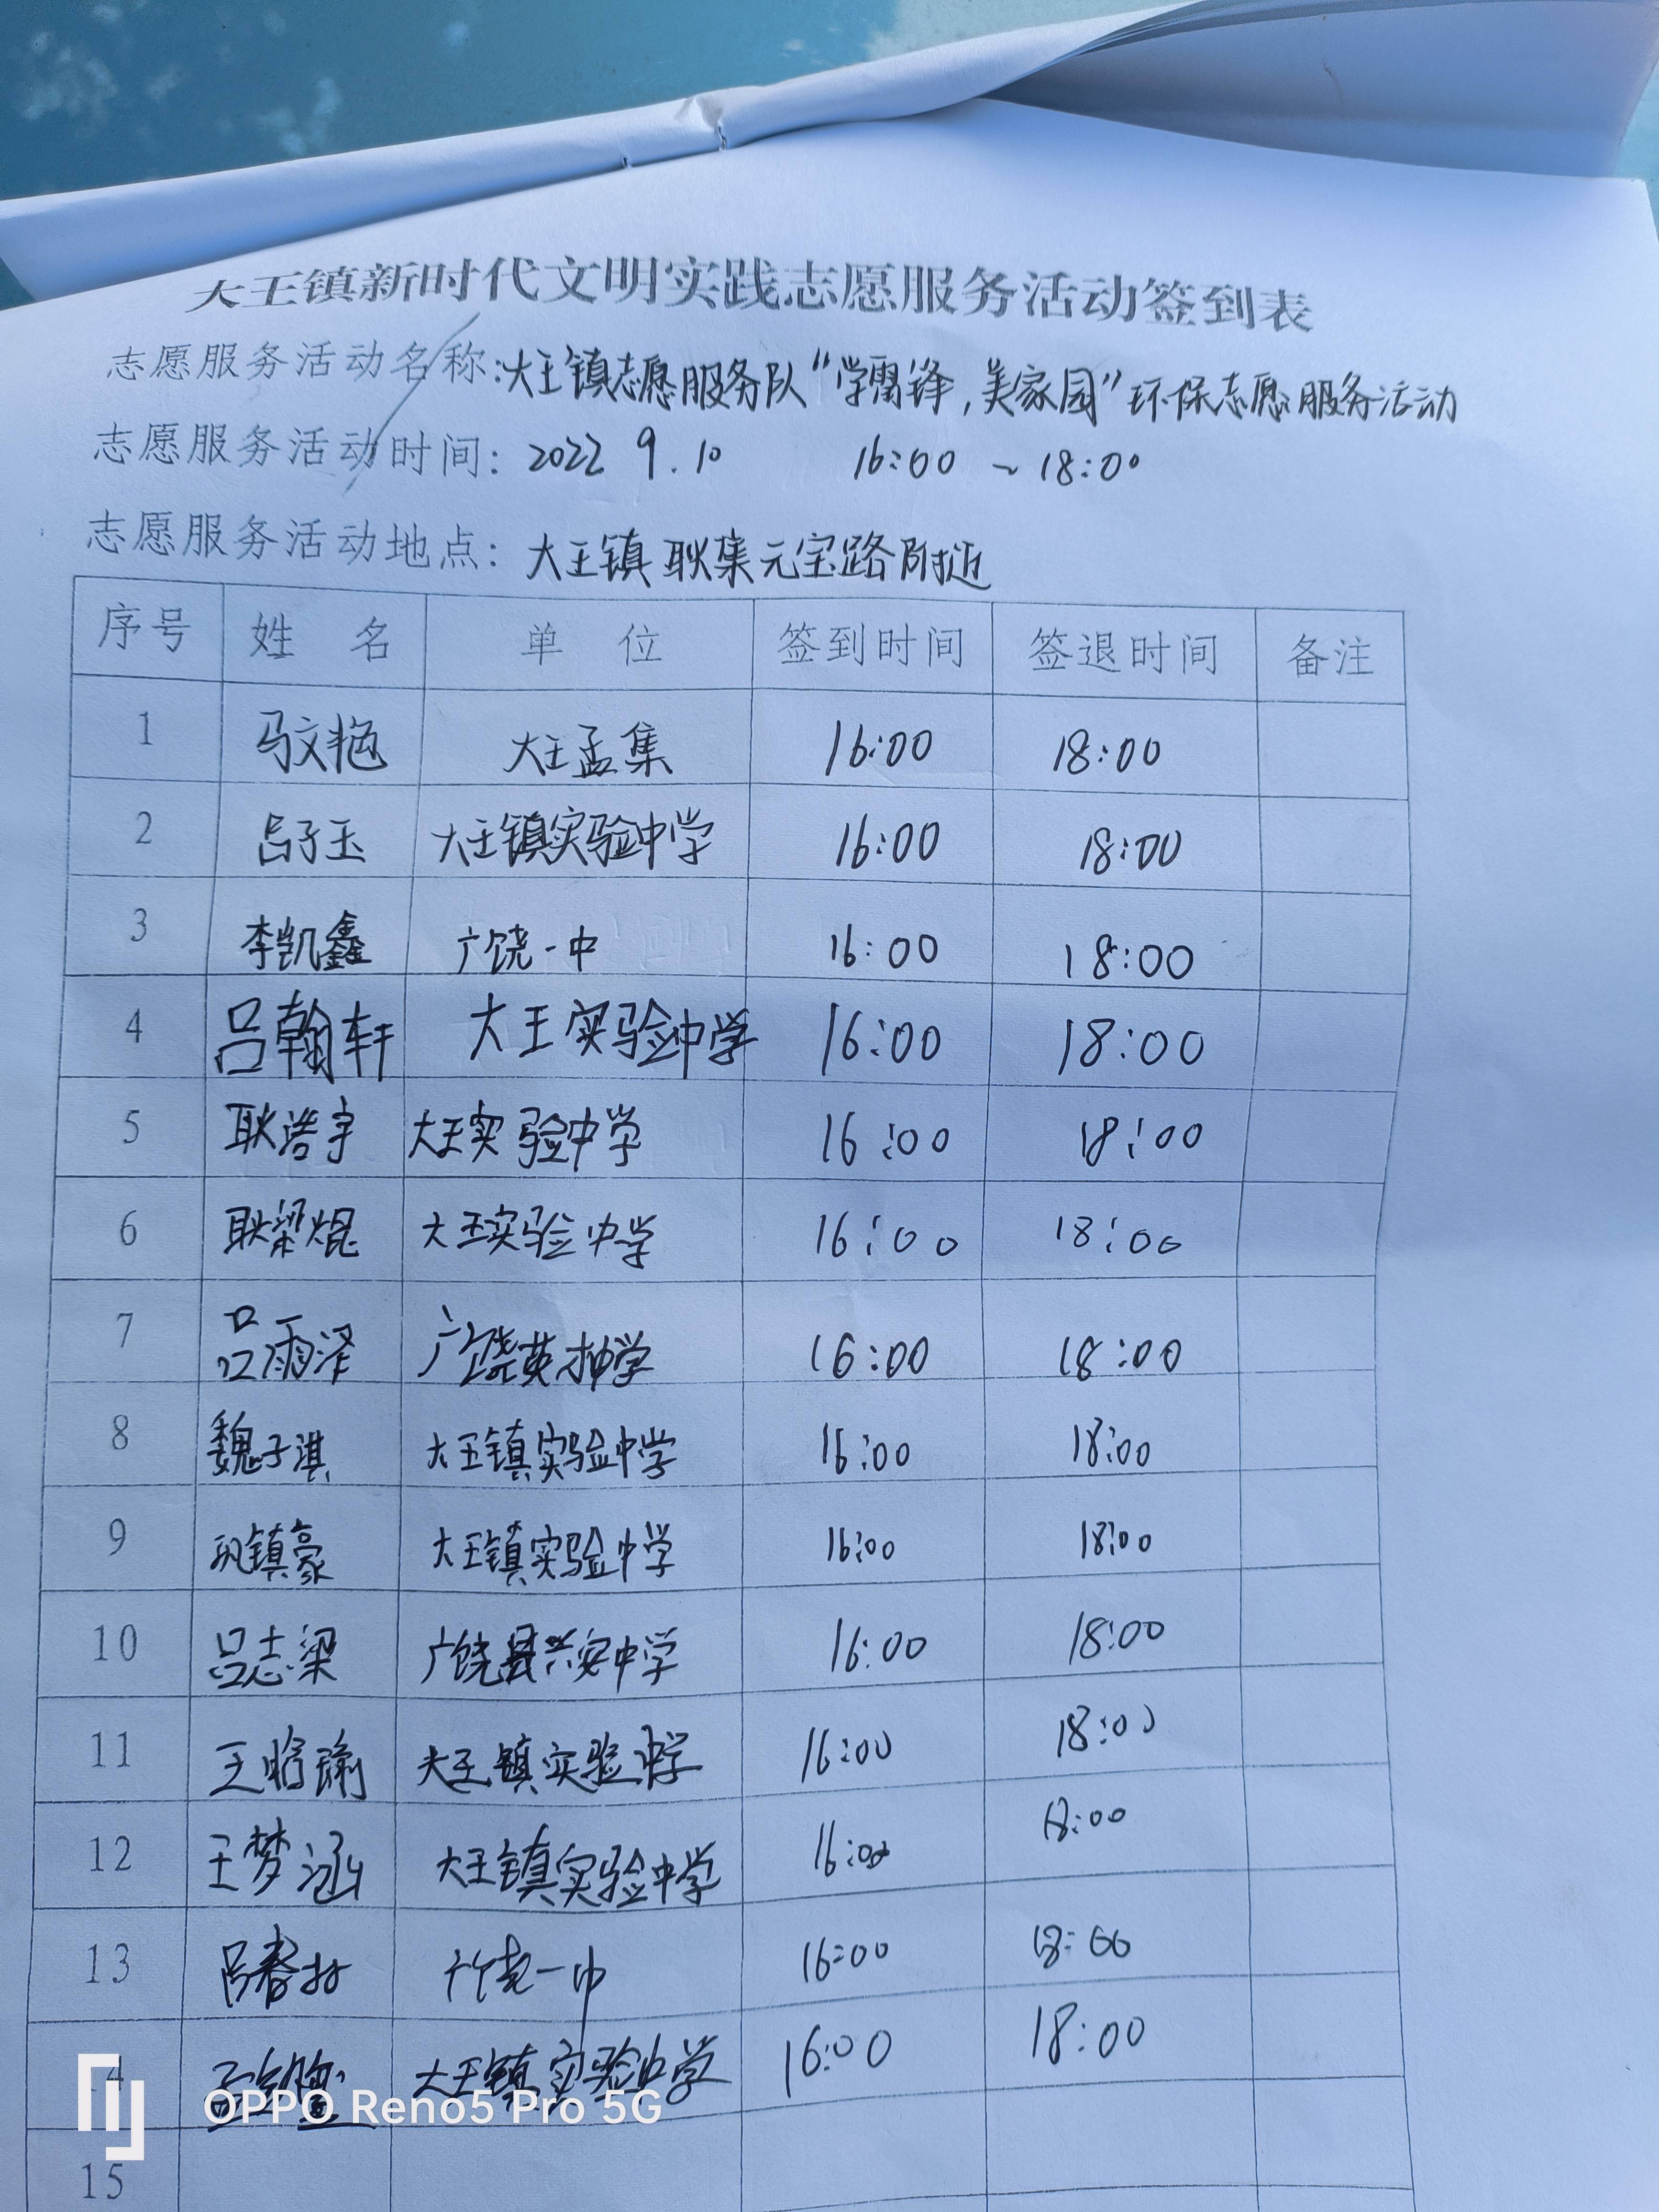 大王镇新时代文明实践志愿服务活动签到表
志愿服务活动名称:大王镇志愿服务队“学雷锋,美家园”环保志愿服务活动
志愿服务活动时间: 2022 9.10 16:00 ~ 18:00
志愿服务活动地点: 大王镇耿集元宝路附近
序号 姓 名 单 位 签到时间 签退时间 备注
1 马文艳 大王孟集 16:00 18:00
2 吕子玉 大王镇实验中学 16:00 18:00
3 李凯鑫 广饶一中 16:00 18:00
4 吕翰轩 大王实验中学 16:00 18:00
5 耿浩宇 大王实验中学 16:00 18:00
6 耿梁焜 大王实验中学 16:00 18:00
7 吕雨泽 广饶英才中学 16:00 18:00
8 魏子淇 大王镇实验中学 16:00 18:00
9 巩镇豪 大王镇实验中学 16:00 18:00
10 吕志梁 广饶县兴安中学 16:00 18:00
11 王 大王镇实验中学 16:00 18:00
12 王梦涵 大王镇实验中学 16:00 18:00
13 吕春 广饶一中 16:00 18:00
14 大王镇实验中学 16:00 18:00
OPPO Reno5 Pro 5G
15